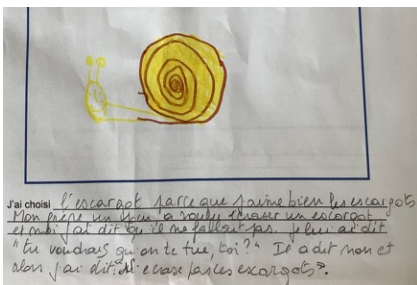 J'ai choisi l'escargot parce que j'aime bien les escargots
Mon frère un jour a voulu écraser un escargot
et moi j'ai dit qu'il ne fallait pas. je lui ai dit
"tu voudrais qu'on te tue, toi?" Il a dit non et
alors j'ai dit: "N'écrase pas les escargots".